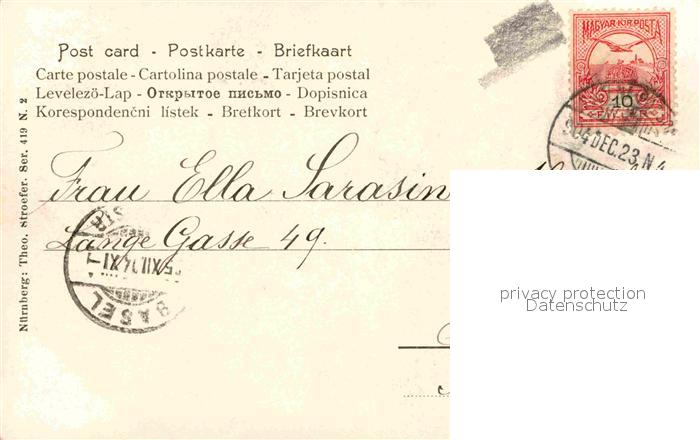 Post card - Postkarte - Briefkaart
Carte postale - Cartolina postale - Tarjeta postal
Levelező-Lap - Открытое письмо - Dopisnica
Korespondenčni lístek - Bretkort - Brevkort
Nürnberg: Theo. Stroefer. Ser. 419 N. 2
MAGYAR KIR POSTA
10
904 DEC. 23. N 4
Frau Ella Sarasin
Lange Gasse 49.
BASEL
XII.04.XI
privacy protection
Datenschutz